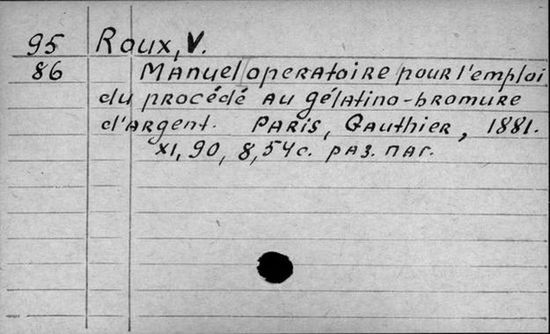 95 Roux, V.
86 Manuel operatoire pour l'emploi
du procédé au gélatino-bromure
d'argent. Paris, Gauthier, 1881.
XI, 90, 8, 54 с. раз. паг.